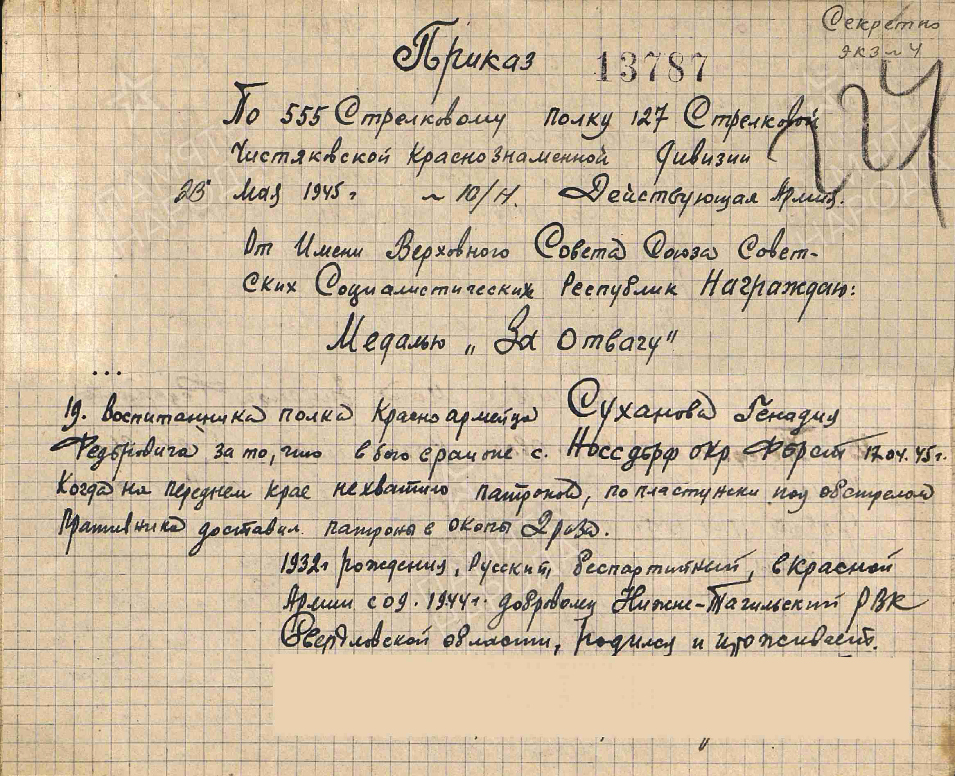 Секретно
экз № 4
Приказ 13787
24
По 555 Стрелковому полку 127 Стрелковой
Чистяквской Краснознаменной Дивизии
25 Мая 1945 г № 10/Н. Действующая Армия.
От Имени Верховного Совета Союза Совет-
ских Социалистических Республик Награждаю:
Медалью „За Отвагу"
...
19. Воспитанника полка Красноармейца Суханова Генадия
Федоровича за то, что в бою в раионе с. Носсдорф окр Форст 17.04.45г.
Когда на переднем крае нехватило патронов, по пластунски под обстрелом
противника доставил патроны в окопы 2 раза.
1932г рождения, Русский, беспартийный, в Красной
Армии с 09.1944г. добровому Нижне-Тагильский РВК
Свердловской области, родился и проживает.